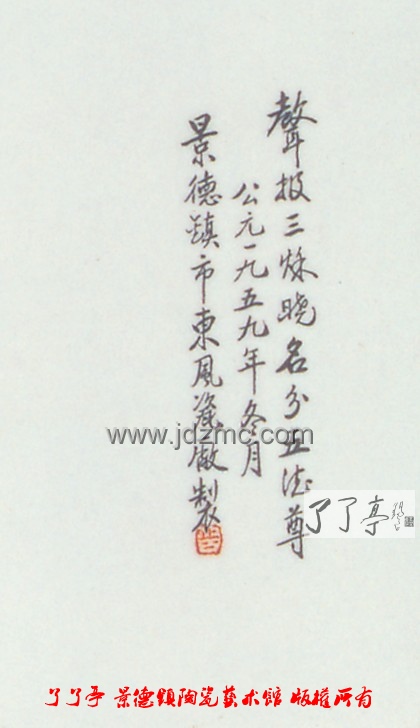 聲报三秋晓名分五德尊
公元一九五九年冬月
景德镇市東風瓷厰製
www.jdzmc.com
了了亭
了了亭 景德鎮陶瓷藝术館 版權所有